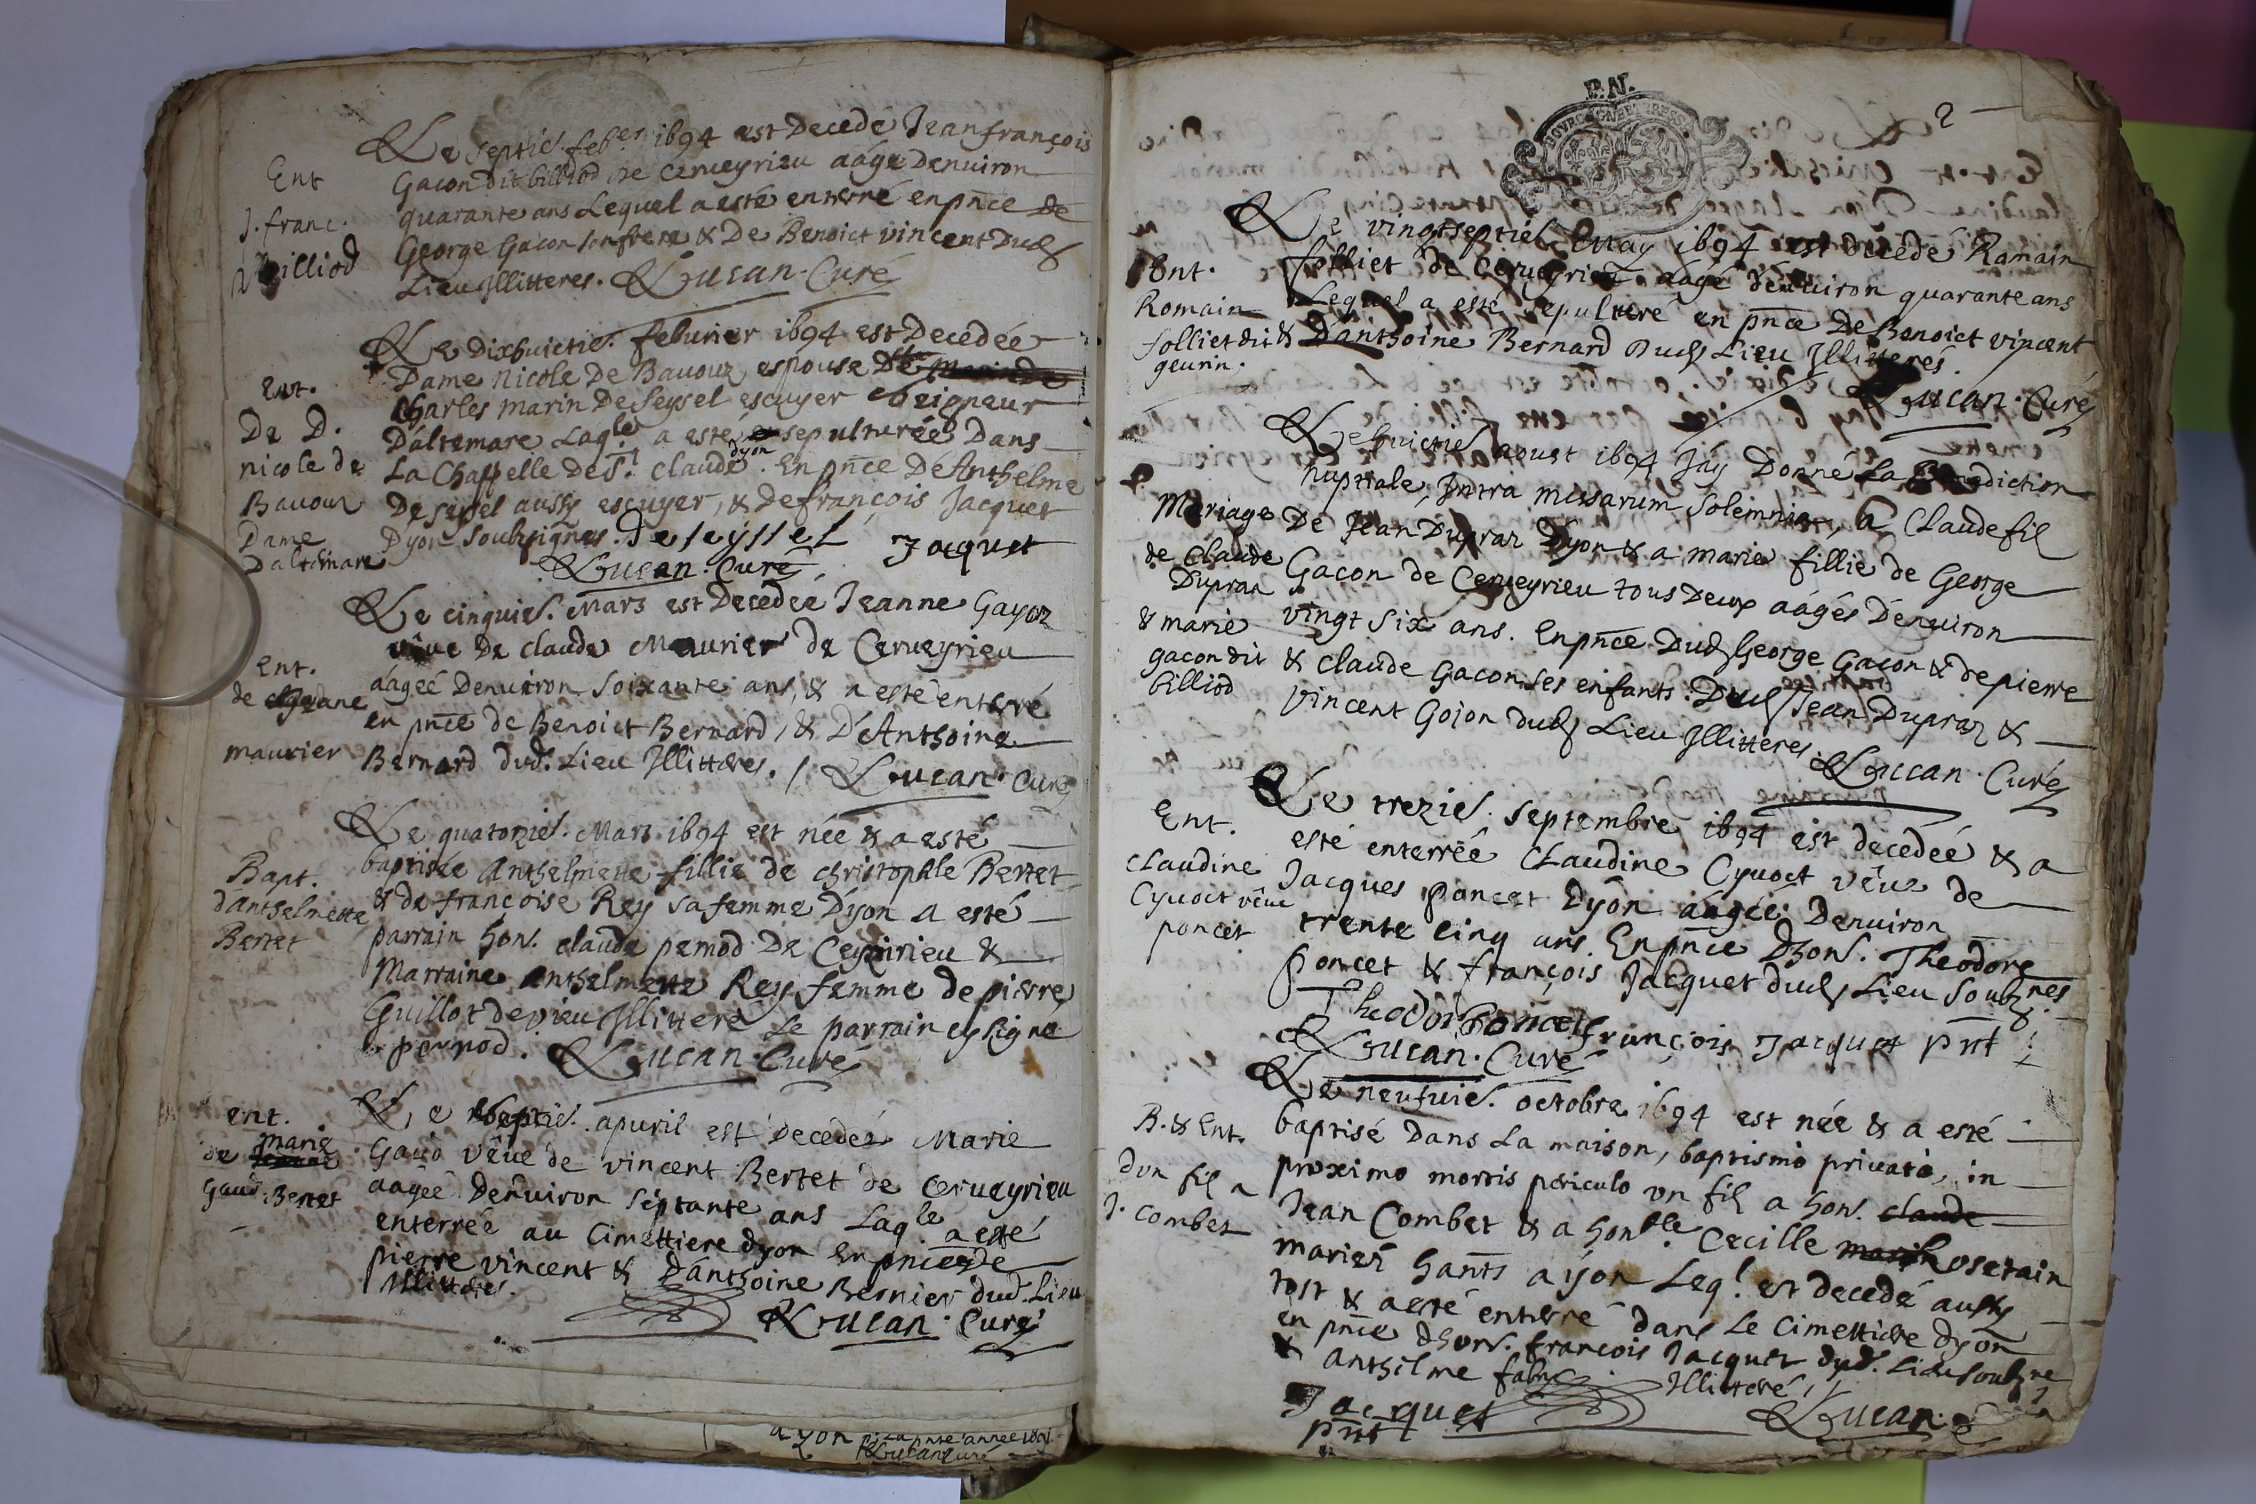 Le septie. feb.er 1694 est Decedé Jean françois
Gacon dit billiod de Cerveyrieu aágé Denuiron
quarante ans Lequel a esté enterré en pñce De
George Gacon son frere & De Benoict vincent Dud.
Lieu Illitteres. Lucan. Curé
Ent
J. franc.
billiod
Le Dixhuictie. feburier 1694 est Decedée
Dame Nicole De Bavouz espouse De
Charles marin De seyssel escuyer seigneur
D'altemare Laq.le a esté sepulturée Dans
La Chappelle De S.t Claude dyon. En pñce De Anthelme
De seissel aussy escuyer, & De françois Jacquet
Dyon soubsignes. De seyssel Jacquet
Lucan. Curé
Ent.
De D.
nicole de
Bavouz
Dame
Daltemare
Le cinquies. Mars est Decedée Jeanne Gayon
vêue De claude Maurier de Cerveyrieu
aágeé Denuiron soixante ans, & a esté enterré
en pñce de Benoict Bernard, & D'Anthoine
Bernard dud. Lieu Illitteres. / Lucan. Curé
Ent.
de Jeane
maurier
Le quatorzies. Mars 1694 est née & a esté
baptisée Anthelmette fillie de christophle Bertet
& de françoise Rey sa femme Dyon a esté
parrain hon. claude pernod De Ceyzirieu &
Marraine Anthelmette Rey femme de pierre
Guillot de vieu Illitteré Le parrain cy signé
pernod. Lucan. Curé
Bapt.
d'anthelmette
Bertet
Le septies. apuril est Decedeé Marie
Gaud vêue de vincent Bertet de Cerveyrieu
aágeé Denuiron séptante ans Laq.le a esté
enterrée au Cimettiere dyon en pñce de
pierre vincent & D'anthoine Bernier dud. Lieu
Illitteres.
Lucan. Curé
ent.
de marie
Gaud. Bertet
ayon pñte année
Lucan curé
P. N.
BOURGOGNE ET BRESSE
2
Le vingtseptie. May 1694 est decedé Romain
folliet De Cerveyrieu aágé d'enuiron quarante ans
Lequel a esté sepulturé en pñce De Benoict vincent
& D'anthoine Bernard Dud. Lieu Illitterés
Lucan. Curé
Ent.
Romain
folliet dit
geurin.
Le huictie. aoust 1694 Jay Donné La Benediction
nuptiale, Intra missarum solemnia, a Claude fil
De Jean Dupraz Dyon & a marie fillie de George
Gacon de Cerveyrieu tous Deux aágés D'enuiron
vingt six ans. En pñce Dud. George Gacon & de pierre
& claude Gacon ses enfants. Dud. Jean Dupraz &
Vincent Gojon dud. Lieu Illitteres. Lucan. Curé
Mariage
de Claude
Dupraz
& marie
gacon dit
billiod
Le trezies. septembre 1694 est decedeé & a
esté enterreé Claudine Cyuoct vêue de
Jacques poncet Dyon aágeé Denuiron
trente cinq ans En pñce Dhon. Theodore
poncet & françois Jacquet dud. Lieu soubsnés
Theodore Poncet françois Jacquet pñt
Lucan. Curé
Ent.
Claudine
Cyuoct vêue
poncet
Le neufuie. octobre 1694 est née & a esté
baptisé Dans La maison, baptismo privato, in
proximo mortis periculo vn fil a hon. claude
Jean Combet & a hon.ble Cecille Rosetain
mariez hañts a yon Leq.l est decedé aussy
tost & a esté enterré dans Le Cimettiere dyon
en pñce dhon. françois Jacquet dud. Lieu soubsne
& anthelme Illitteré
Jacquet
pñt
Lucan. C
B. & Ent.
dun fil a
J. combet